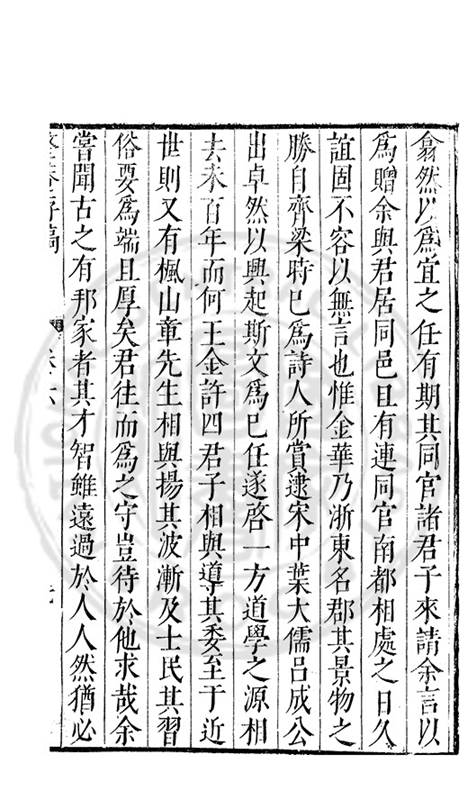 翕然以爲宜之任有期其同官諸君子來請余言以
爲贈余與君居同邑且有連同官南都相處之日久
誼固不容以無言也惟金華乃浙東名郡其景物之
勝自齊梁時已爲詩人所賞逮宋中葉大儒呂成公
出卓然以興起斯文爲已任遂啓一方道學之源相
去未百年而何王金許四君子相與導其委至于近
世則又有楓山章先生相與揚其波漸及士民其習
俗要爲端且厚矣君往而爲之守豈待於他求哉余
嘗聞古之有邦家者其才智雖遠過於人人然猶必
存稿 卷六